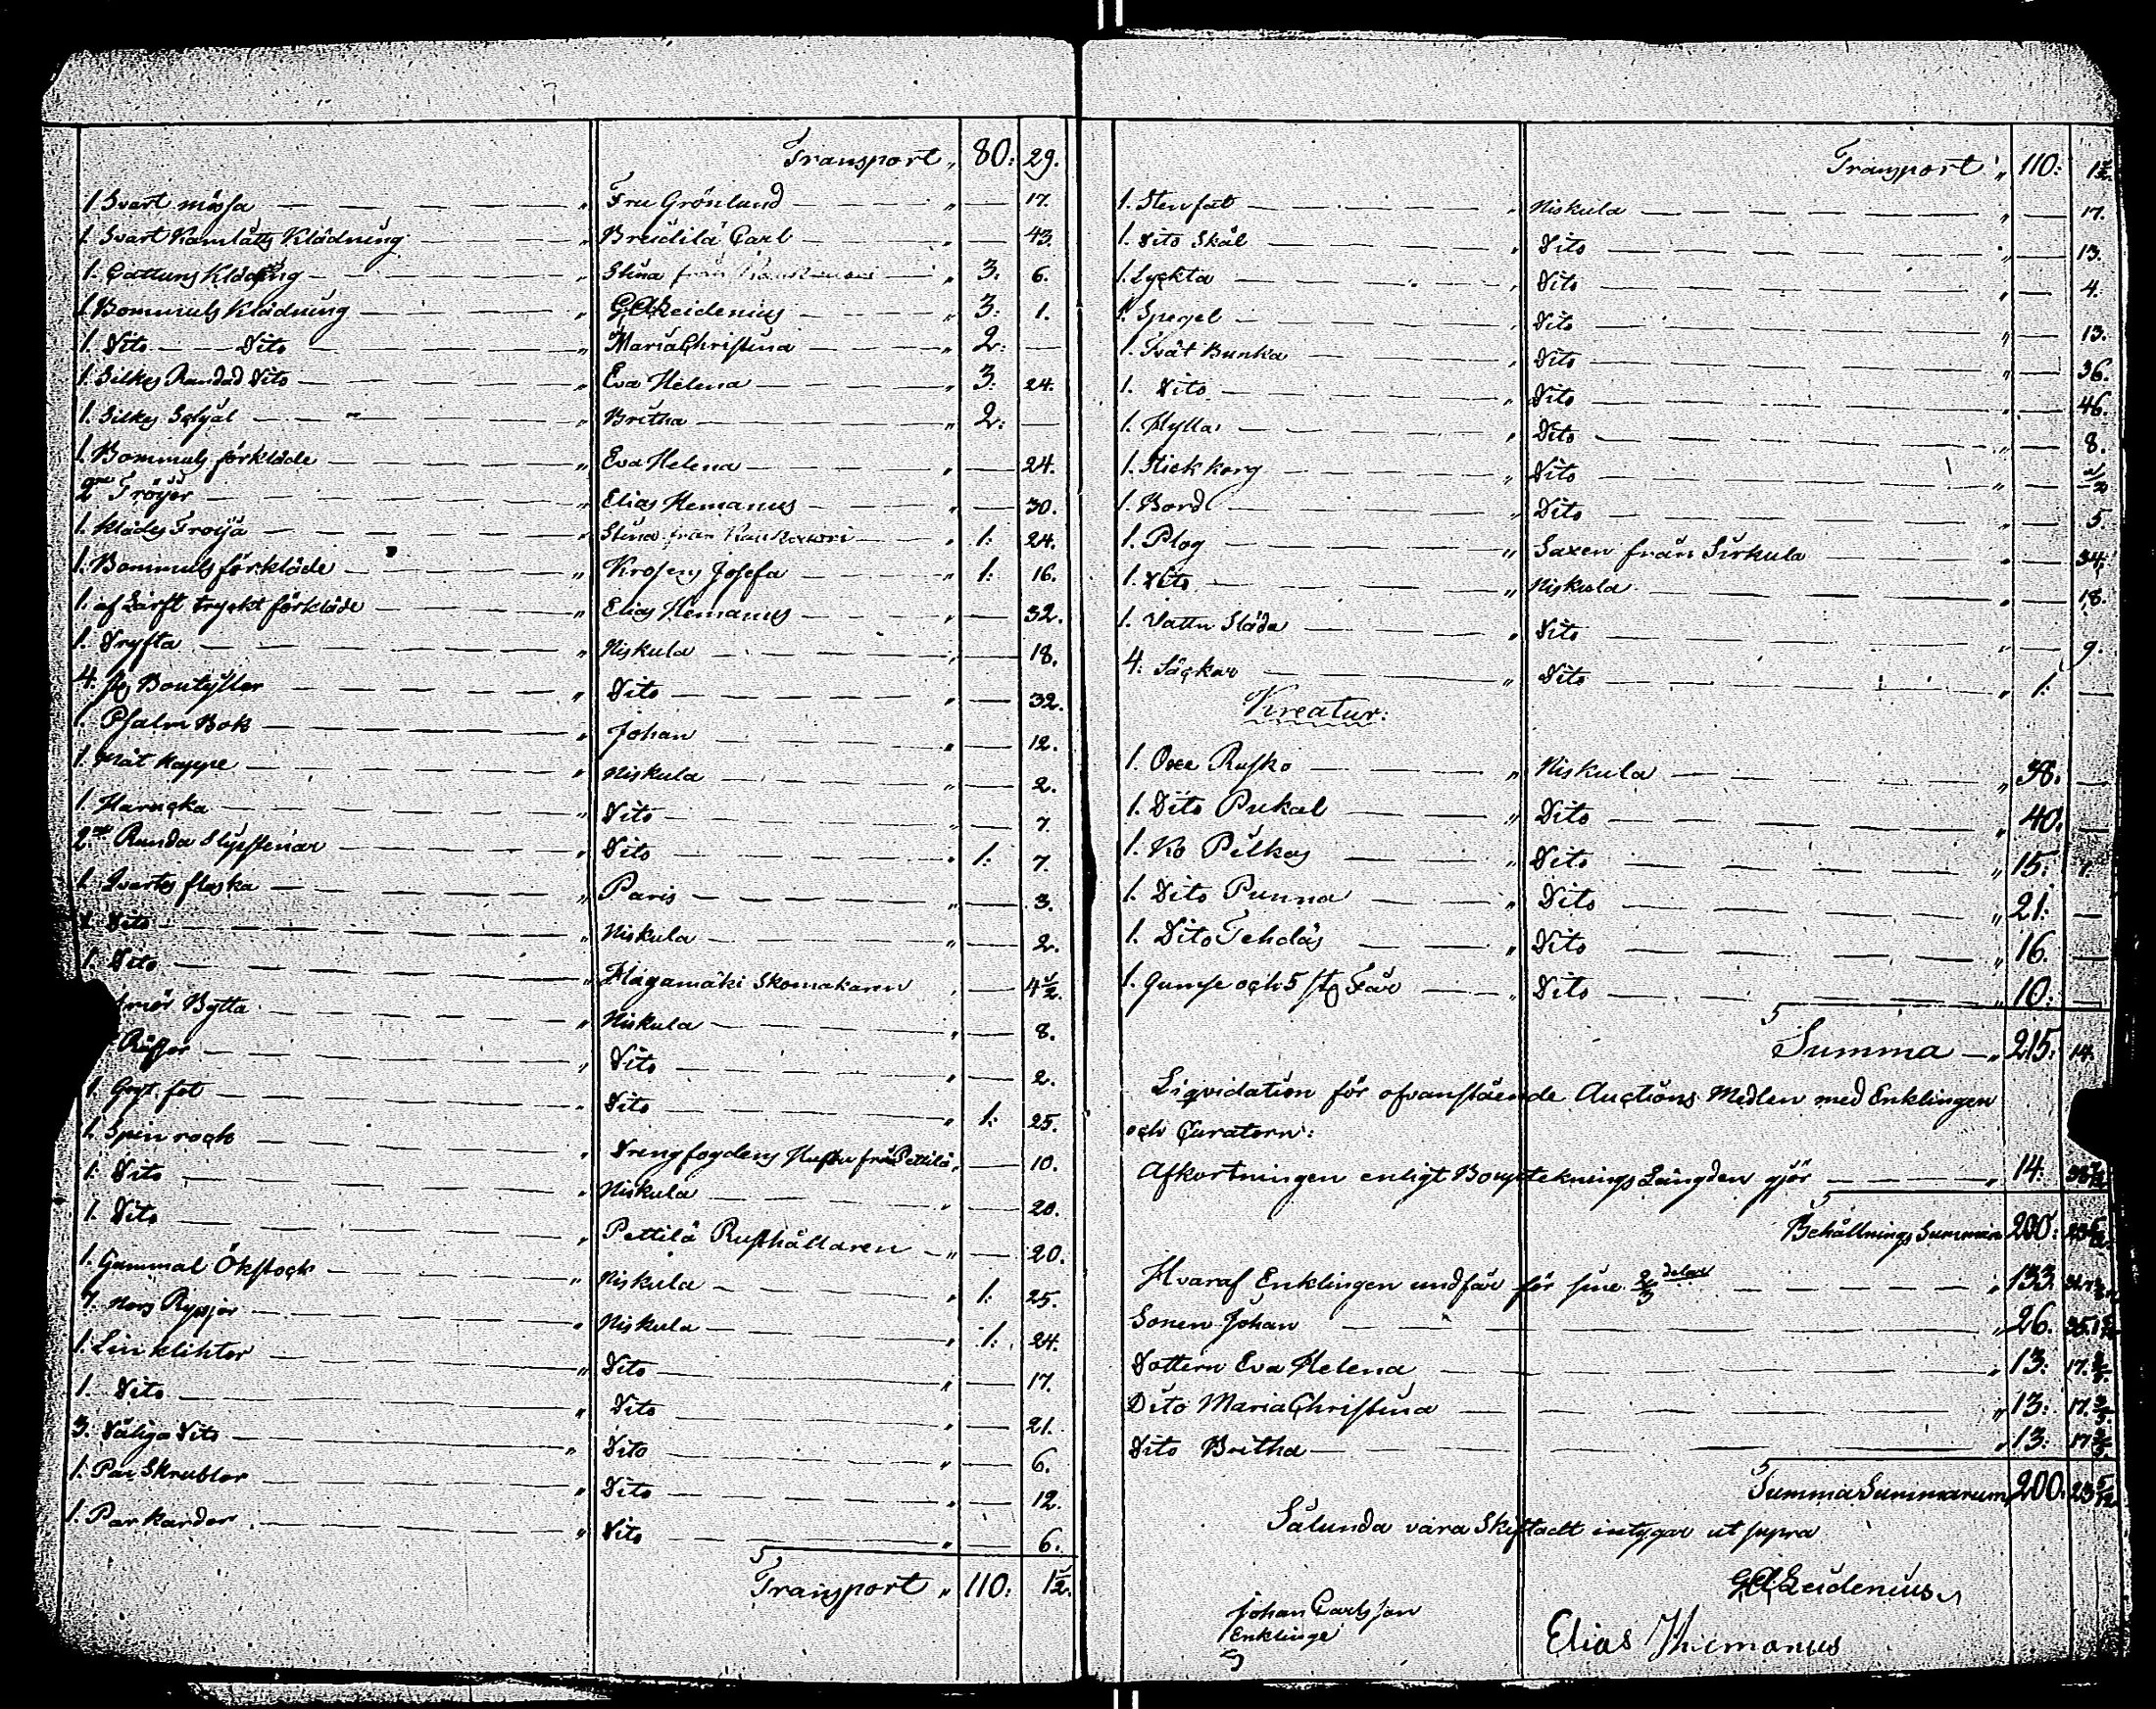 Transport „ 80: 29.
1 Svart mössa „ Fru Grönlund „ — 17.
1. Svart Kamlåtts Klädning „ Breidilä Carl „ — 43.
1. Cattuns Klädning „ Stina från „ 3. 6.
1 Bommuls Klädning „ G.A. Leidenius „ 3: 1.
1. Dito — Dito „ Maria Christina „ 2: —
1. Silkes Randad Dito „ Eva Helena „ 3: 24.
1. Silkes Schjal „ Britha „ 2: —
1. Bommuls förkläde „ Eva Helena „ — 24.
2ne Tröyor „ Elias Hemanus „ — 30.
1. Klädes Tröya „ Stina från „ 1: 24.
1. Bommuls förkläde „ Krosens Josefa „ 1: 16.
1. af Lärft tryckt förkläde „ Elias Hemanus „ — 32.
1. Dryfta „ Niskula „ — 18.
4. st Boutyller „ Dito „ — 32.
1. Psalm Bok „ Johan „ — 12.
1. Måt Kappe „ Niskula „ — 2.
1. Harucka „ Dito „ — 7.
2ne Runda Slipstenar „ Dito „ 1: 7.
1. Qvarters flaska „ Paris „ — 3.
1. Dito „ Niskula „ — 2.
1. Dito „ Hagamäki Skomakaren „ — 4½.
Smör Bytta „ Niskula „ — 8.
„ Dito „ — 2.
1. Gryt. fot „ Dito „ 1: 25.
1. Spin rock „ Drengfogdens Hustru från Pettilä „ — 10.
1. Dito „ Niskula „ — 20.
1. Dito „ Pettilä Rusthållaren „ — 20.
1. Gammal Ökstock „ Niskula „ 1: 25.
7. Nors Ryssjor „ Niskula „ 1: 24.
1. Lin klihtor „ Dito „ — 17.
1. Dito „ Dito „ — 21.
3. Dåliga Dito „ Dito „ — 6.
1. Par Skrubbor „ Dito „ — 12.
1. Par Kardor „ Dito „ — 6.
Transport „ 110: 1½.
Transport „ 110: 1½.
1. Stenfat „ Niskula „ — 17.
1. Dito Skål „ Dito „ — 13.
1. Lyckta „ Dito „ — 4.
1. Spegel „ Dito „ — 13.
1. Tvät Bunka „ Dito „ — 36.
1. Dito „ Dito „ — 46.
1. Hylla „ Dito „ — 8.
1. Stick korg „ Dito „ — ½
1. Bord „ Dito „ — 5.
1. Plog „ Saxen från Sirkula „ — 34.
1. Dito „ Niskula „ — 18.
1. Vattn Släda „ Dito „ — 9.
4. Säckar „ Dito „ 1: —
Kreatur:
1. Oxe Rusko „ Niskula „ 38: —
1. Dito Pukal „ Dito „ 40: —
1. Ko Pilkas „ Dito „ 15: 1.
1. Dito Punna „ Dito „ 21: —
1. Dito Tehdäs „ Dito „ 16. —
1. Gumse och 5 st Får „ Dito „ 10: —
Summa „ 215: 14.
Liqvidation för ofvanstående Auctions Medlen med Enklingen
och Curatorn:
Afkortningen enligt Boupteknings Längden gjör „ 14:
Behållnings Summan 200:
Hvaraf Enklingen undfår för sine ⅔ delar „ 133
Sonen Johan „ 26.
Dottern Eva Helena „ 13: 17.
Dito Maria Christina „ 13: 17.
Dito Britha „ 13: 17
Summa Summarum 200. 23 5/12
Sålunda vara Skiftadt intygar ut supra
G.A. Leidenius
Johan Carlsson
Enklinge
Elias Hiemanus